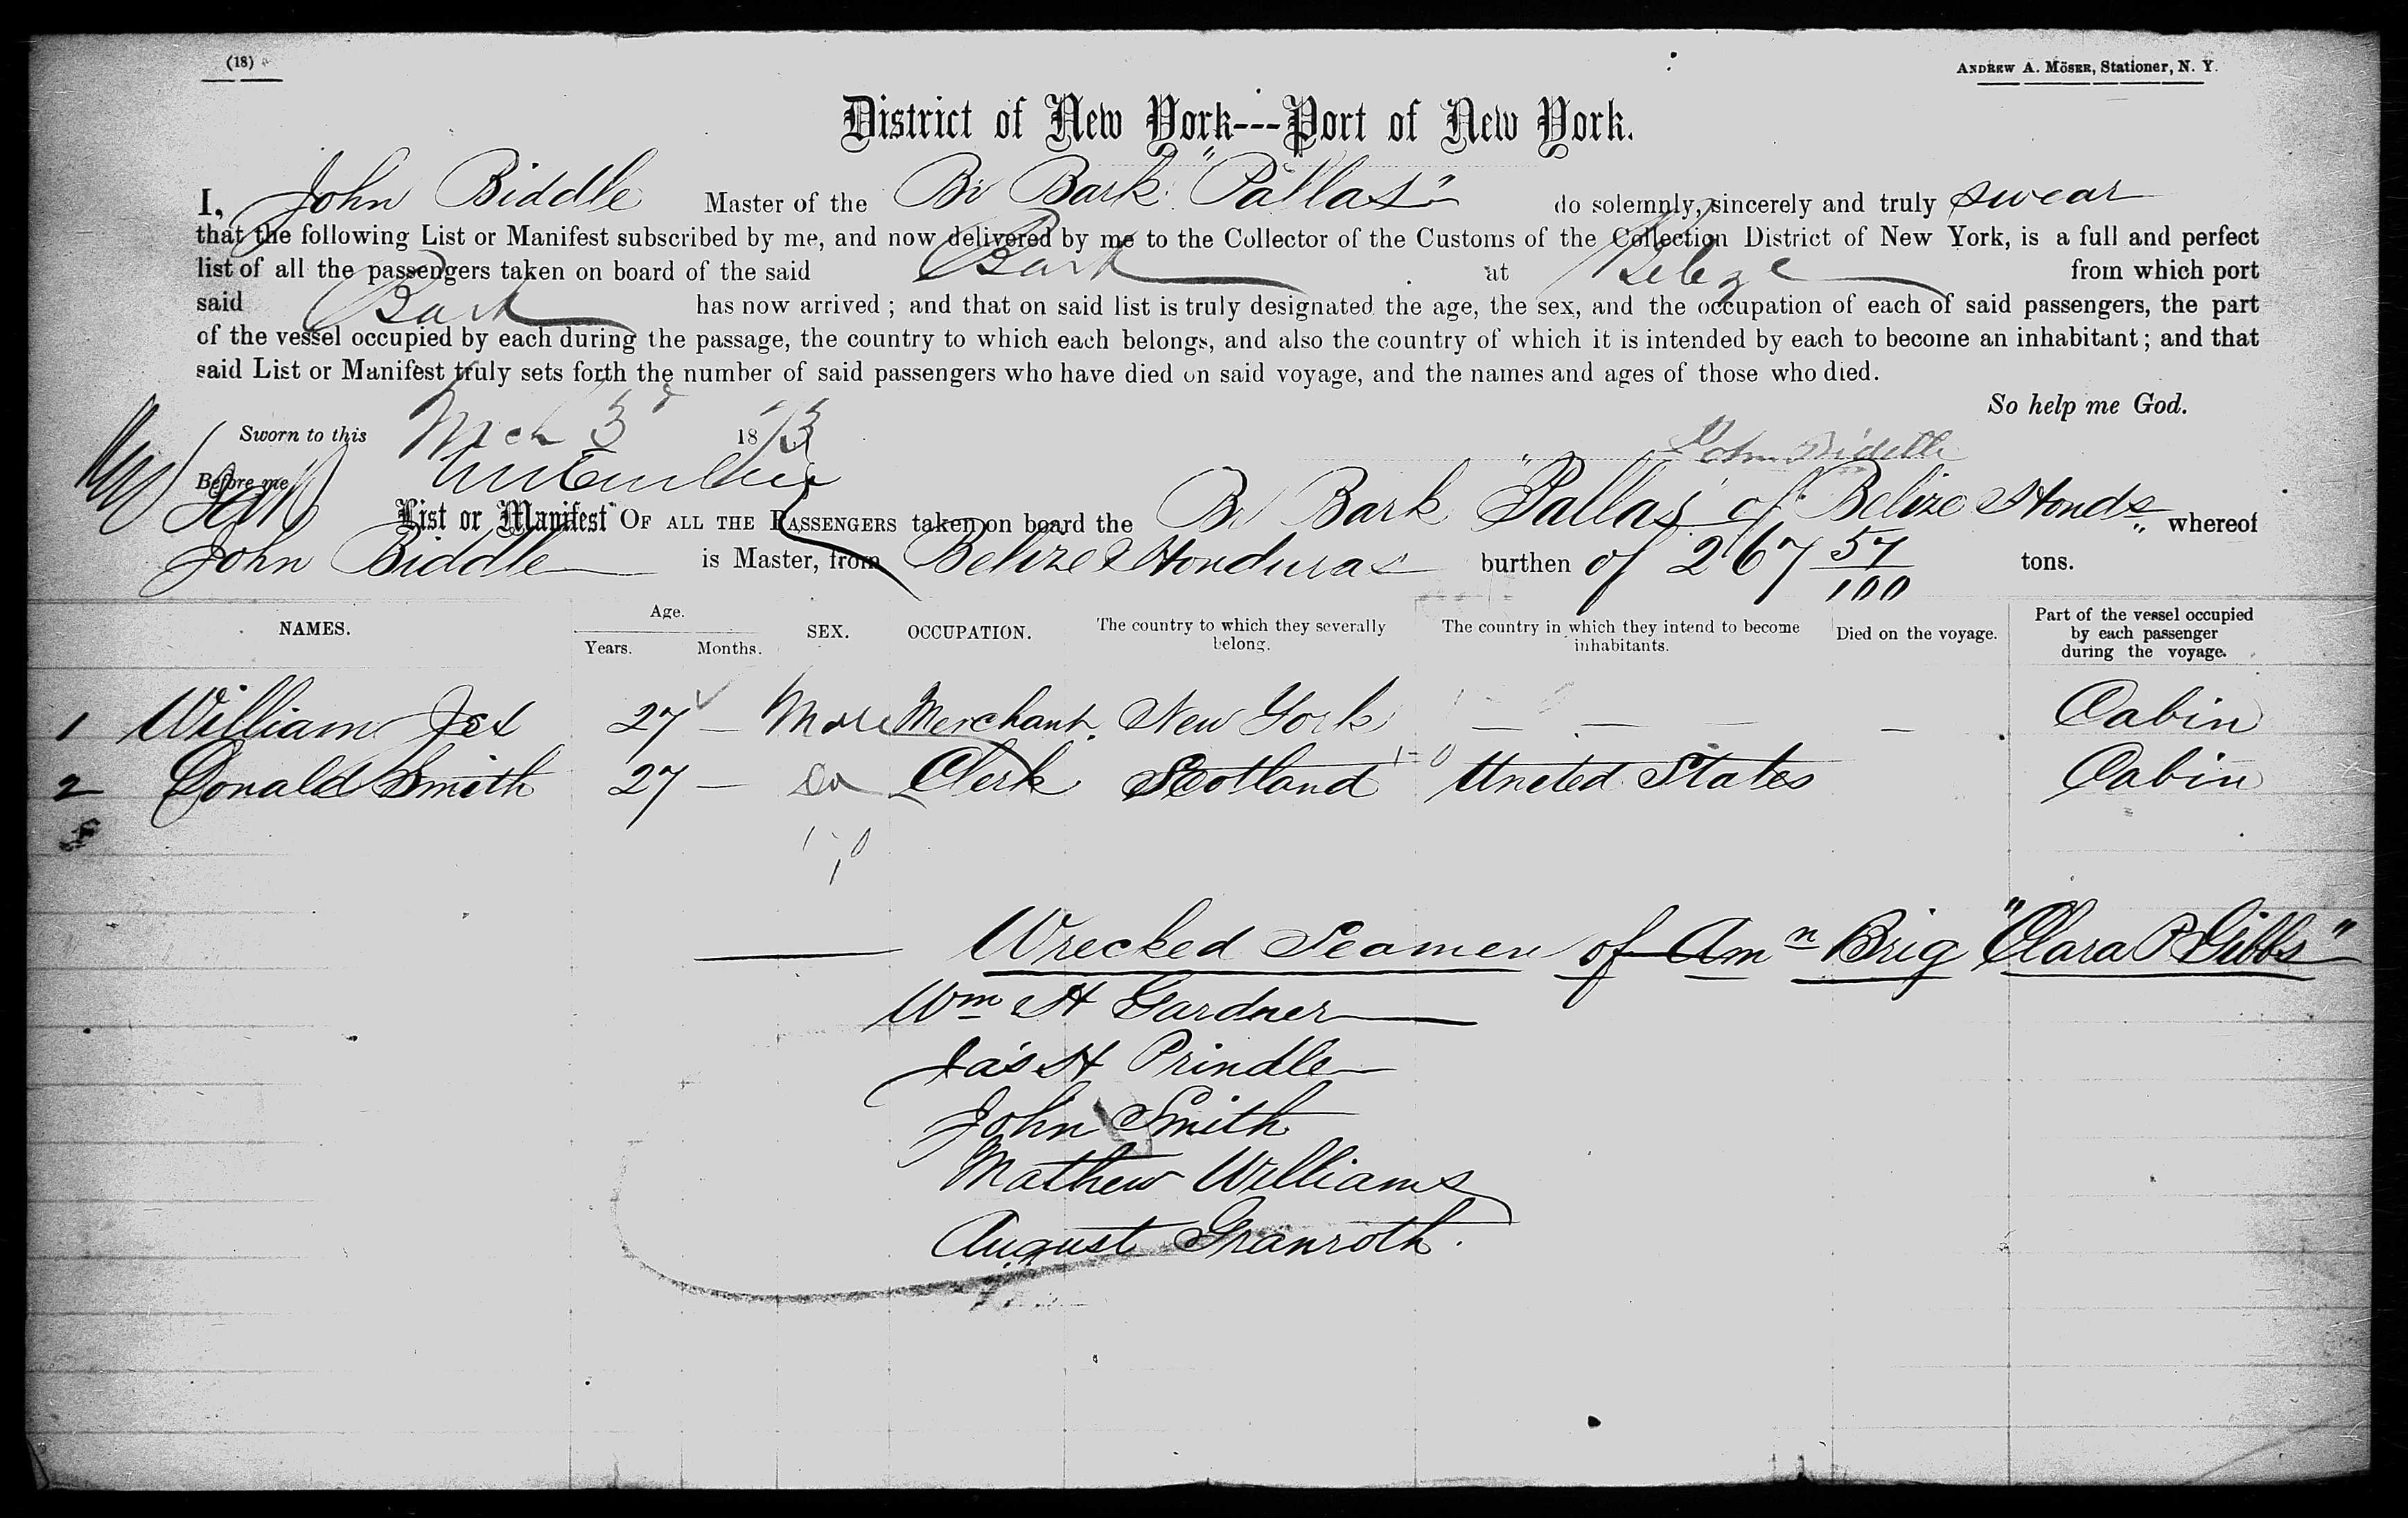 (18)
ANDREW A. MÖSER, Stationer, N. Y.
District of New York---Port of New York.
I, John Biddle Master of the Br Bark "Pallas" do solemnly, sincerely and truly swear
that the following List or Manifest subscribed by me, and now delivered by me to the Collector of the Customs of the Collection District of New York, is a full and perfect
list of all the passengers taken on board of the said Bark at Belize from which port
said Bark has now arrived ; and that on said list is truly designated the age, the sex, and the occupation of each of said passengers, the part
of the vessel occupied by each during the passage, the country to which each belongs, and also the country of which it is intended by each to become an inhabitant ; and that
said List or Manifest truly sets forth the number of said passengers who have died on said voyage, and the names and ages of those who died.
So help me God.
Sworn to this Mch 3d 1873
John Biddle
Before me
List or Manifest OF ALL THE PASSENGERS taken on board the Br Bark "Pallas" of Belize Hond's whereof
John Biddle is Master, from Belize Honduras burthen of 267 57/100 tons.
NAMES. Age. Years. Months. SEX. OCCUPATION. The country to which they severally belong. The country in which they intend to become inhabitants. Died on the voyage. Part of the vessel occupied by each passenger during the voyage.
1 William Jex 27 — Male Merchant. New York — — — — Cabin
2 Donald Smith 27 — Do Clerk Scotland United States Cabin
Wrecked Seamen of Amn Brig "Clara P Gibbs"
Wm H Gardner
Ja's H Prindle
John Smith
Mathew Williams
August Granroth.